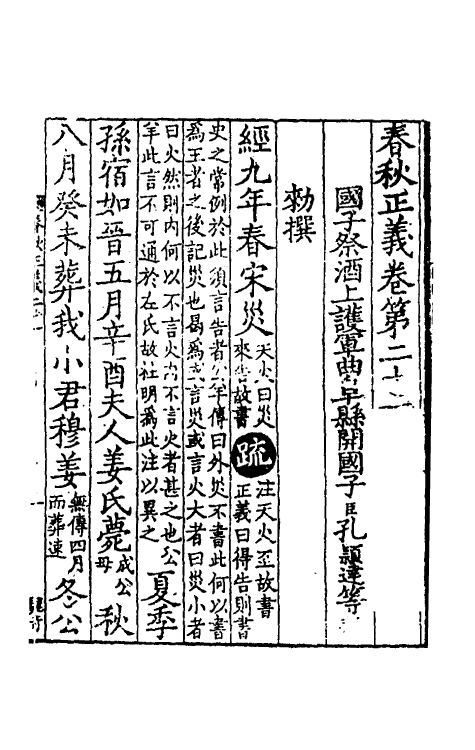 春秋正義卷第二十
國子祭酒上護軍曲阜縣開國子臣孔穎達等
勑撰
經九年春宋災天火曰災來告故書疏注天火至故書正義曰得告則書
史之常例於此須言告者公羊傳曰外災不書此何以書
爲王者之後記災也曷爲或言災或言火大者曰災小者
曰火然則內何以不言火內不言火者甚之也公
羊此言不可通於左氏故杜明爲此注以異之夏季
孫宿如晉五月辛酉夫人姜氏薨成公母秋
八月癸未葬我小君穆姜無傳四月而葬速冬公